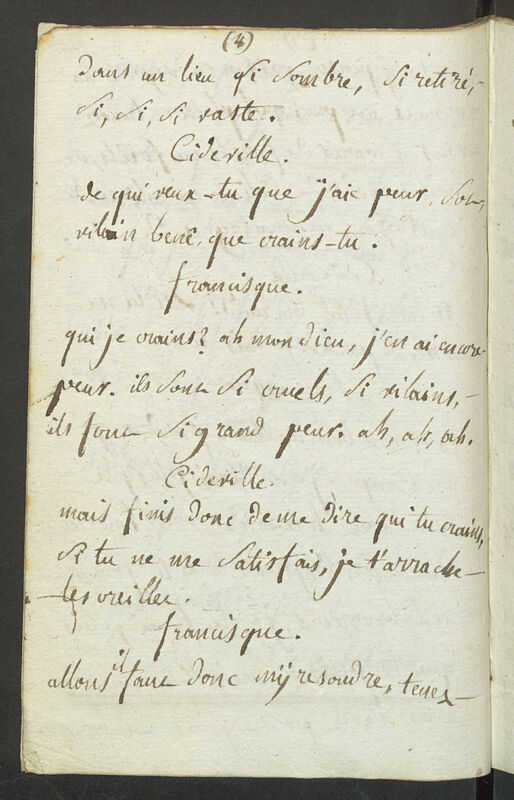 (4)
dans un lieu si sombre, si retiré,
si, si, si vaste.
Cideville.
de qui veux-tu que j'aie peur,
vilain benê, que crains-tu.
francisque.
qui je crains? ah mon dieu, j'en ai encore
peur. ils sont si cruels, si vilains,
ils font si grand peur. ah, ah, ah.
Cideville.
mais finis donc de me dire qui tu crains,
si tu ne me satisfais, je t'arrache
les oreilles.
francisque.
allons il faut donc m'y resoudre, tenez